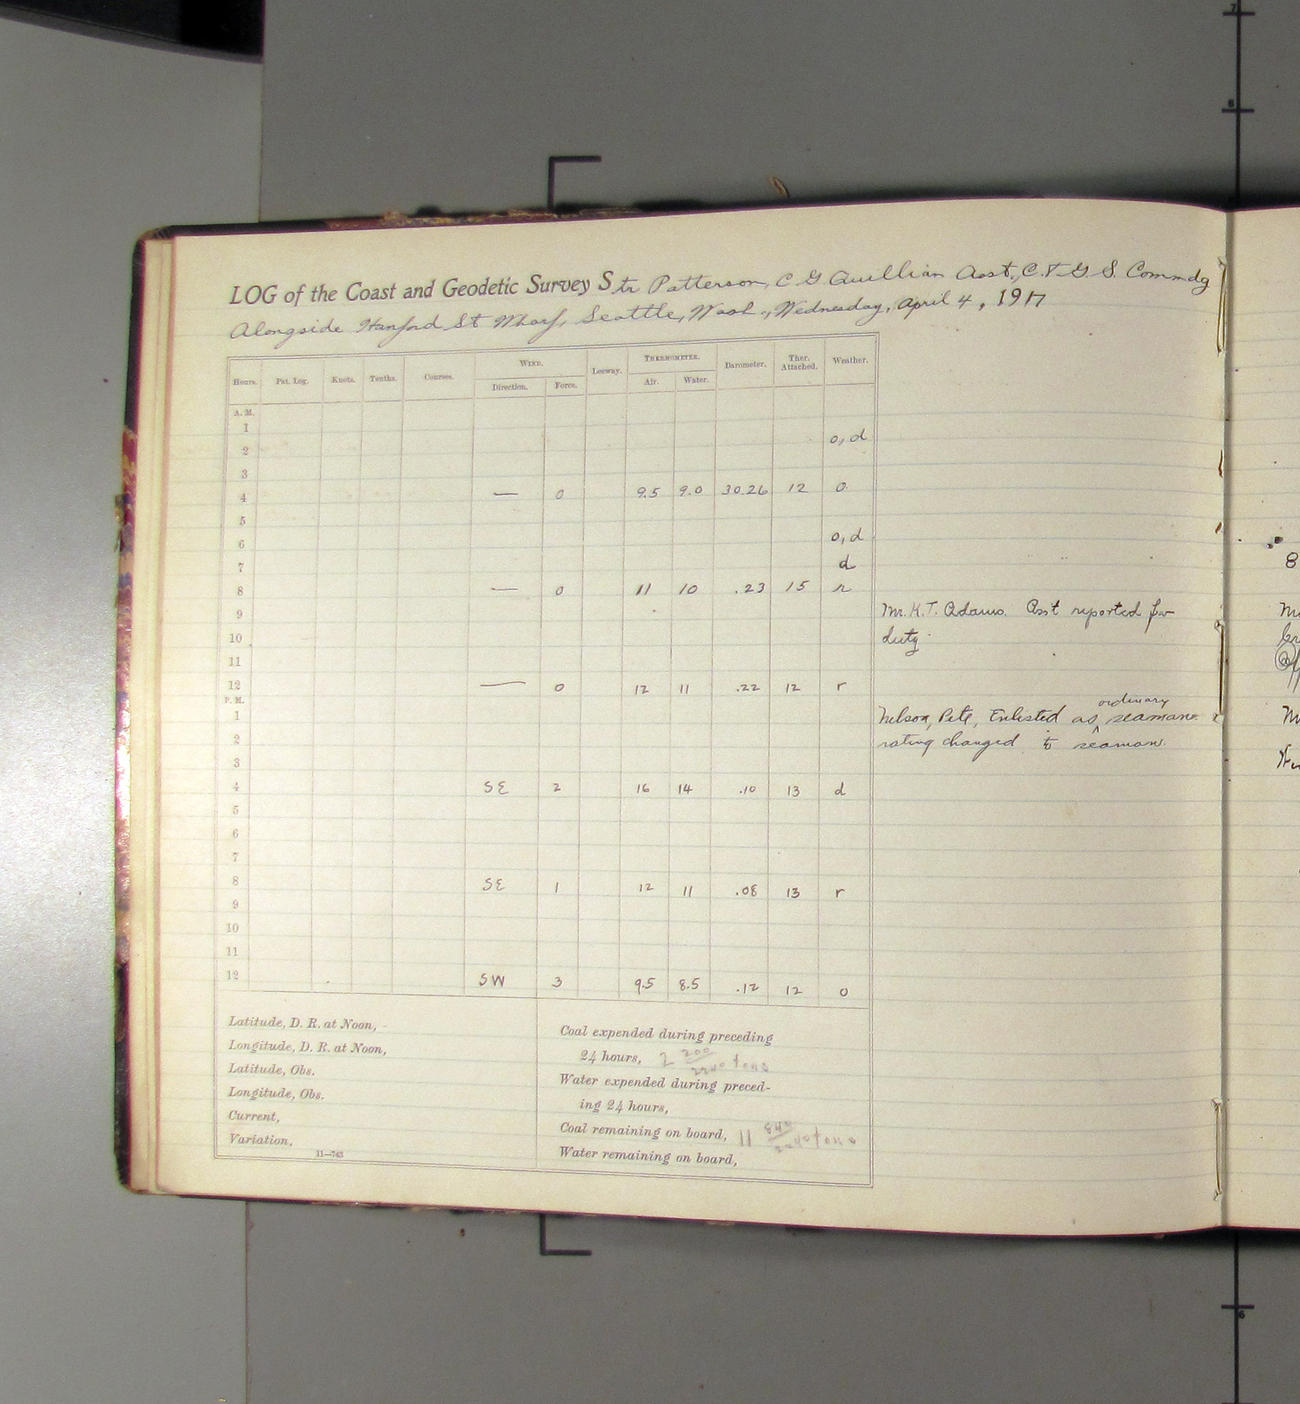 LOG of the Coast and Geodetic Survey Str Patterson, C G Quillian Asst., C. & G. S. Commdg
Alongside Hanford St Wharf, Seattle, Wash., Wednesday, April 4, 1917
Hours. Pat. Log. Knots. Tenths. Courses. WIND. Leeway. THERMOMETER. Barometer. Ther. Attached. Weather.
Direction. Force. Air. Water.
A. M.
1
2 o, d
3
4 — 0 9.5 9.0 30.26 12 o
5
6 o, d
7 d
8 — 0 11 10 .23 15 r
9 Mr. K. T. Adams. Asst reported for
10 duty.
11
12 — 0 12 11 .22 12 r
P. M.
ordinary
1 Nelson, Pete, Enlisted as ^ seaman
2 rating changed to seaman.
3
4 SE 2 16 14 .10 13 d
5
6
7
8 SE 1 12 11 .08 13 r
9
10
11
12 SW 3 9.5 8.5 .12 12 o
Latitude, D. R. at Noon,
Longitude, D. R. at Noon,
Latitude, Obs.
Longitude, Obs.
Current,
Variation,
11—743
Coal expended during preceding
24 hours, 2 200/2240 tons
Water expended during preced-
ing 24 hours,
Coal remaining on board, 11 840/2240 tons
Water remaining on board,
8
7
8
6